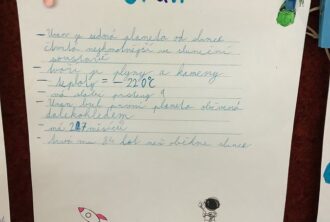 Uran
- Uran je sedmá planeta od slunce
čtvrtá nejhmotnější ve sluneční
soustavě
- tvoří ji plyny a kameny
- teploty = -220°C
- má slabé prstence
- Uran byl první planeta objevená
dalekohledem
- má 27 měsíců
- Uranu 84 let než oběhne slunce